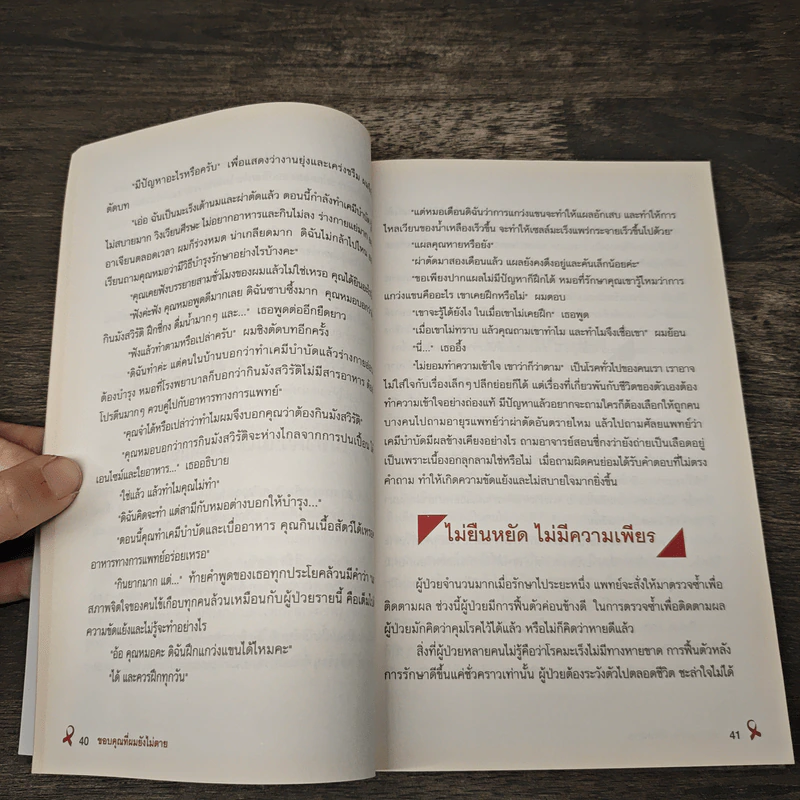 "มีปัญหาอะไรหรือครับ" เพื่อแสดงว่างานยุ่งและเคร่งขรึม
ตัดบท
"เอ่อ ฉันเป็นมะเร็งเต้านมและผ่าตัดแล้ว ตอนนี้กำลังทำเคมีบำบัด
ไม่สบายมาก วิงเวียนศีรษะ ไม่อยากอาหารและกินไม่ลง ร่างกายแย่มาก
อาเจียนตลอดเวลา ผมก็ร่วงหมด น่าเกลียดมาก ดิฉันไม่กล้าไปไหน
เรียนถามคุณหมอว่ามีวิธีบำรุงรักษาอย่างไรบ้างคะ"
"คุณเคยฟังบรรยายสามชั่วโมงของผมแล้วไม่ใช่เหรอ คุณได้ยินอะไร
"ฟังค่ะฟัง คุณหมอพูดดีมากเลย ดิฉันซาบซึ้งมาก คุณหมอบอกว่า
กินมังสวิรัติ ฝึกชี่กง ดื่มน้ำมากๆ และ..." เธอพูดต่ออีกยืดยาว
"ฟังแล้วทำตามหรือเปล่าครับ" ผมชิงตัดบทอีกครั้ง
"ดิฉันทำค่ะ แต่คนในบ้านบอกว่าทำเคมีบำบัดแล้วร่างกาย
ต้องบำรุง หมอที่โรงพยาบาลก็บอกว่ากินมังสวิรัติไม่มีสารอาหาร ต้อง
โปรตีนมากๆ ควบคู่ไปกับอาหารทางการแพทย์"
"คุณจำได้หรือเปล่าว่าทำไมผมจึงบอกคุณว่าต้องกินมังสวิรัติ"
"คุณหมอบอกว่าการกินมังสวิรัติจะห่างไกลจากการปนเปื้อน
เอนไซม์และใยอาหาร..." เธออธิบาย
"ใช่แล้ว แล้วทำไมคุณไม่ทำ"
"ดิฉันคิดจะทำ แต่สามีกับหมอต่างบอกให้บำรุง..."
"ตอนนี้คุณทำเคมีบำบัดและเบื่ออาหาร คุณกินเนื้อสัตว์ได้เหรอ
อาหารทางการแพทย์อร่อยเหรอ"
"กินยากมาก แต่..." ท้ายคำพูดของเธอทุกประโยคล้วนมีคำว่า
สภาพจิตใจของคนไข้เกือบทุกคนล้วนเหมือนกับผู้ป่วยรายนี้ คือเต็มไป
ความขัดแย้งและไม่รู้จะทำอย่างไร
"อ้อ คุณหมอคะ ดิฉันฝึกแกว่งแขนได้ไหมคะ"
"ได้ และควรฝึกทุกวัน"
40 ขอบคุณที่ผมยังไม่ตาย
"แต่หมอเตือนดิฉันว่าการแกว่งแขนจะทำให้แผลอักเสบ และทำให้การ
ไหลเวียนของน้ำเหลืองเร็วขึ้น จะทำให้เซลล์มะเร็งแพร่กระจายเร็วขึ้นไปด้วย"
"แผลคุณหายหรือยัง"
"ผ่าตัดมาสองเดือนแล้ว แผลยังคงตึงอยู่และคันเล็กน้อยค่ะ"
"ขอเพียงปากแผลไม่มีปัญหาก็ฝึกได้ หมอที่รักษาคุณเขารู้ไหมว่าการ
แกว่งแขนคืออะไร เขาเคยฝึกหรือไม่" ผมตอบ
"เขาจะรู้ได้ยังไง ในเมื่อเขาไม่เคยฝึก" เธอพูด
"เมื่อเขาไม่ทราบ แล้วคุณถามเขาทำไม และทำไมจึงเชื่อเขา" ผมย้อน
"นี่..." เธออึ้ง
"ไม่ยอมทำความเข้าใจ เขาว่าก็ว่าตาม" เป็นโรคทั่วไปของคนเรา เราอาจ
ไม่ใส่ใจกับเรื่องเล็กๆ ปลีกย่อยก็ได้ แต่เรื่องที่เกี่ยวพันกับชีวิตของตัวเองต้อง
ทำความเข้าใจอย่างถ่องแท้ มีปัญหาแล้วอยากจะถามใครก็ต้องเลือกให้ถูกคน
บางคนไปถามอายุรแพทย์ว่าผ่าตัดอันตรายไหม แล้วไปถามศัลยแพทย์ว่า
เคมีบำบัดมีผลข้างเคียงอย่างไร ถามอาจารย์สอนชี่กงว่ายังถ่ายเป็นเลือดอยู่
เป็นเพราะเนื้องอกลุกลามใช่หรือไม่ เมื่อถามผิดคนย่อมได้รับคำตอบที่ไม่ตรง
คำถาม ทำให้เกิดความขัดแย้งและไม่สบายใจมากยิ่งขึ้น
ไม่ยืนหยัด ไม่มีความเพียร
ผู้ป่วยจำนวนมากเมื่อรักษาไประยะหนึ่ง แพทย์จะสั่งให้มาตรวจซ้ำเพื่อ
ติดตามผล ช่วงนี้ผู้ป่วยมีการฟื้นตัวค่อนข้างดี ในการตรวจซ้ำเพื่อติดตามผล
ผู้ป่วยมักคิดว่าคุมโรคไว้ได้แล้ว หรือไม่ก็คิดว่าหายดีแล้ว
สิ่งที่ผู้ป่วยหลายคนไม่รู้คือว่าโรคมะเร็งไม่มีทางหายขาด การฟื้นตัวหลัง
การรักษาดีขึ้นแค่ชั่วคราวเท่านั้น ผู้ป่วยต้องระวังตัวไปตลอดชีวิต ชะล่าใจไม่ได้
41